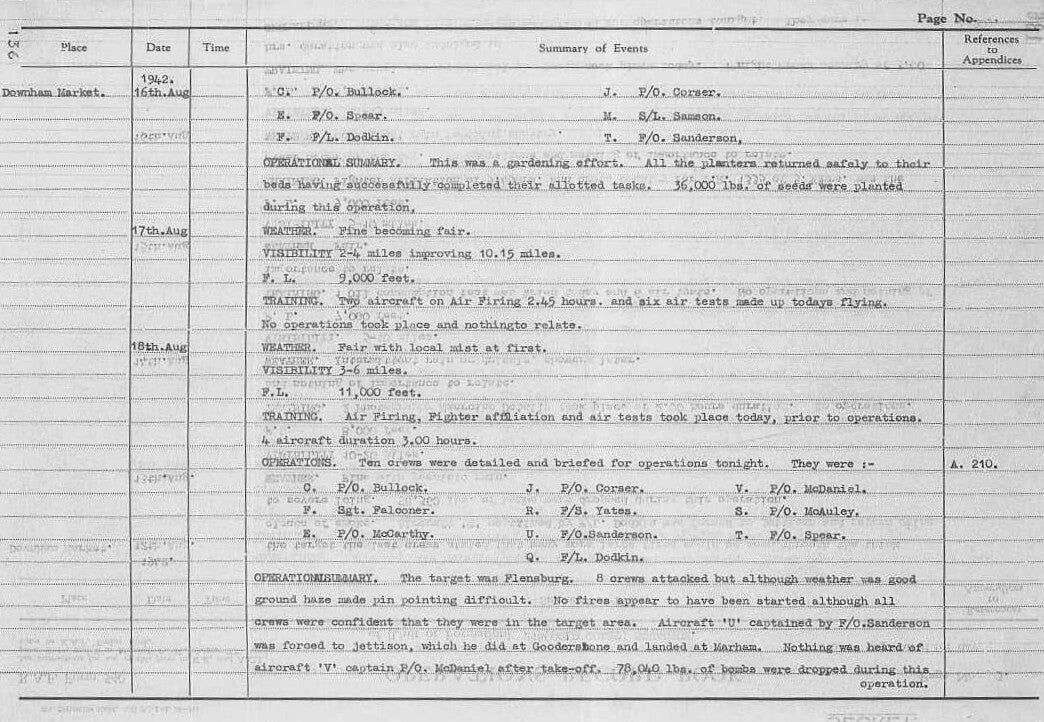 Page No.
Place Date Time Summary of Events References to Appendices
151
1942.
Downham Market. 16th.Aug C. P/O. Bullock. J. P/O. Corser.
E. P/O. Spear. M. S/L. Samson.
F. F/L. Dodkin. T. F/O. Sanderson,
OPERATIONAL SUMMARY. This was a gardening effort. All the planters returned safely to their
beds having successfully completed their allotted tasks. 36,000 lbs. of seeds were planted
during this operation,
17th.Aug WEATHER. Fine becoming fair.
VISIBILITY 2-4 miles improving 10.15 miles.
F. L. 9,000 feet.
TRAINING. Two aircraft on Air Firing 2.45 hours. and six air tests made up todays flying.
No operations took place and nothingto relate.
18th.Aug WEATHER. Fair with local mist at first.
VISIBILITY 3-6 miles.
F.L. 11,000 feet.
TRAINING. Air Firing, Fighter affiliation and air tests took place today, prior to operations.
4 aircraft duration 3.00 hours.
OPERATIONS. Ten crews were detailed and briefed for operations tonight. They were :- A. 210.
P/O. Bullock. J. P/O. Corser. V. P/O. McDaniel.
F. Sgt. Falconer. R. F/S. Yates. S. P/O. McAuley.
E. P/O. McCarthy. U. F/O.Sanderson. T. F/O. Spear.
Q. F/L. Dodkin.
OPERATIONALSUMMARY. The target was Flensburg. 8 crews attacked but although weather was good
ground haze made pin pointing difficult. No fires appear to have been started although all
crews were confident that they were in the target area. Aircraft 'U' captained by F/O.Sanderson
was forced to jettison, which he did at Gooderstone and landed at Marham. Nothing was heard of
aircraft 'V' captain P/O. McDaniel after take-off. 78,040 lbs. of bombs were dropped during this
operation.